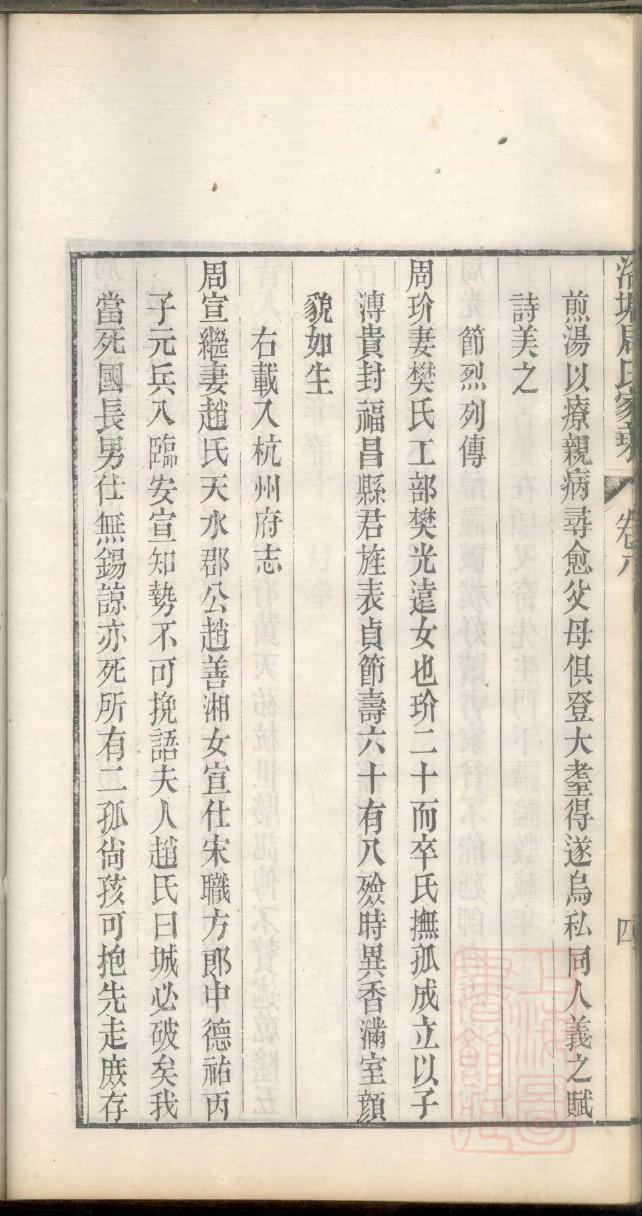 周氏家乘 卷六 四
煎湯以療親病尋愈父母俱登大耋得遂烏私同人義之賦
詩美之
節烈列傳
周玠妻樊氏工部樊光遠女也玠二十而卒氏撫孤成立以子
溥貴封福昌縣君旌表貞節壽六十有八殮時異香滿室顏
貌如生
右載入杭州府志
周宣繼妻趙氏天水郡公趙善湘女宣仕宋職方郎中德祐丙
子元兵入臨安宣知勢不可挽語夫人趙氏曰城必破矣我
當死國長男仕無錫諒亦死所有二孤尙孩可抱先走庶存